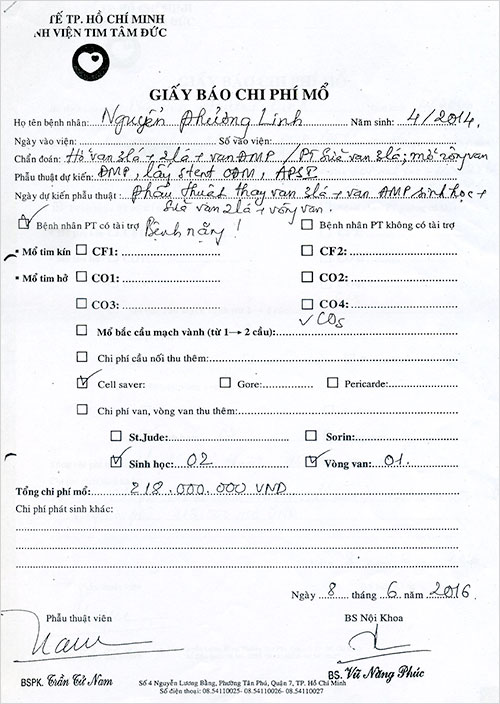 TẾ TP. HỒ CHÍ MINH
NH VIỆN TIM TÂM ĐỨC
GIẤY BÁO CHI PHÍ MỔ
Họ tên bệnh nhân: Nguyễn Phương Linh Năm sinh: 4/2014
Ngày vào viện: Số vào viện:
Chẩn đoán: Hở van 3 lá + 2 lá + van ĐMP / PT Sửa van 3 lá; mở rộng van
Phẫu thuật dự kiến: ĐMP, lấy stent ODM, APSI
Ngày dự kiến phẫu thuật: phẫu thuật thay van 3 lá + van AMP sinh học +
Sửa van 2 lá + vòng van.
Bệnh nhân PT có tài trợ Bệnh nặng! Bệnh nhân PT không có tài trợ
• Mổ tim kín CF1: CF2:
• Mổ tim hở CO1: CO2:
CO3: CO4:
CO5
Mổ bắc cầu mạch vành (từ 1→2 cầu):
Chi phí cầu nối thu thêm:
Cell saver: Gore: Pericarde:
Chi phí van, vòng van thu thêm:
St.Jude: Sorin:
Sinh học: 02 Vòng van: 01.
Tổng chi phí mổ: 218.000.000 VND
Chi phí phát sinh khác:
Ngày 8 tháng 6 năm 2016
Phẫu thuật viên BS Nội Khoa
BSPK. Trần Tử Nam BS. Vũ Năng Phúc
Số 4 Nguyễn Lương Bằng, Phường Tân Phú, Quận 7, TP. Hồ Chí Minh
Số điện thoại: 08.54110025- 08.54110026 - 08.54110027